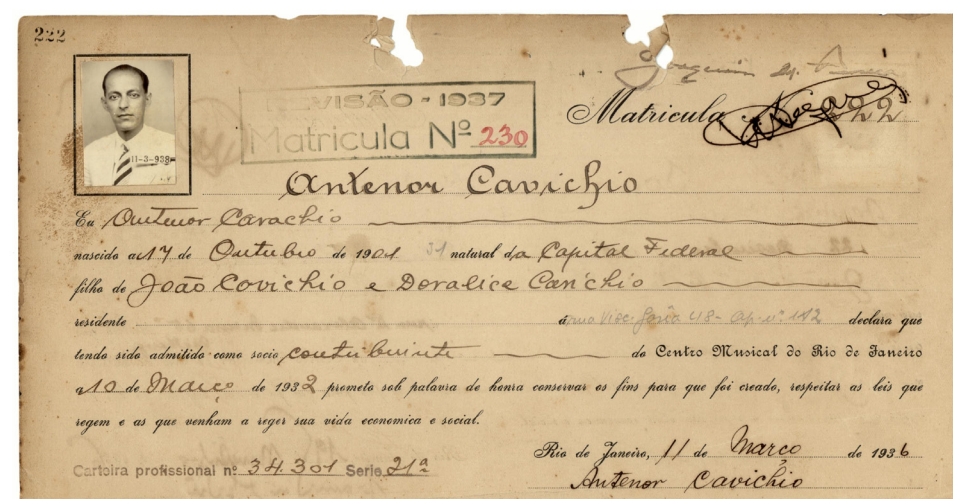 222
REVISÃO - 1937
Matricula Nº 230
Joaquim
Matricula 322
11-3-938
Antenor Cavichio
Eu Antenor Cavachio
nascido a 17 de Outubro de 1901 31 natural da Capital Federal
filho de João Covichio e Doralice Canichio
residente á rua Visc. Gavia 48 - Ap. nº 142 declara que
tendo sido admitido como socio contribuinte do Centro Musical do Rio de Janeiro
a 10 de Março de 1932 prometo sob palavra de honra conservar os fins para que foi creado, respeitar as leis que
regem e as que venham a reger sua vida economica e social.
Rio de Janeiro, 11 de Março de 1936
Carteira profissional nº 34.301 Serie 21ª
Antenor Cavichio